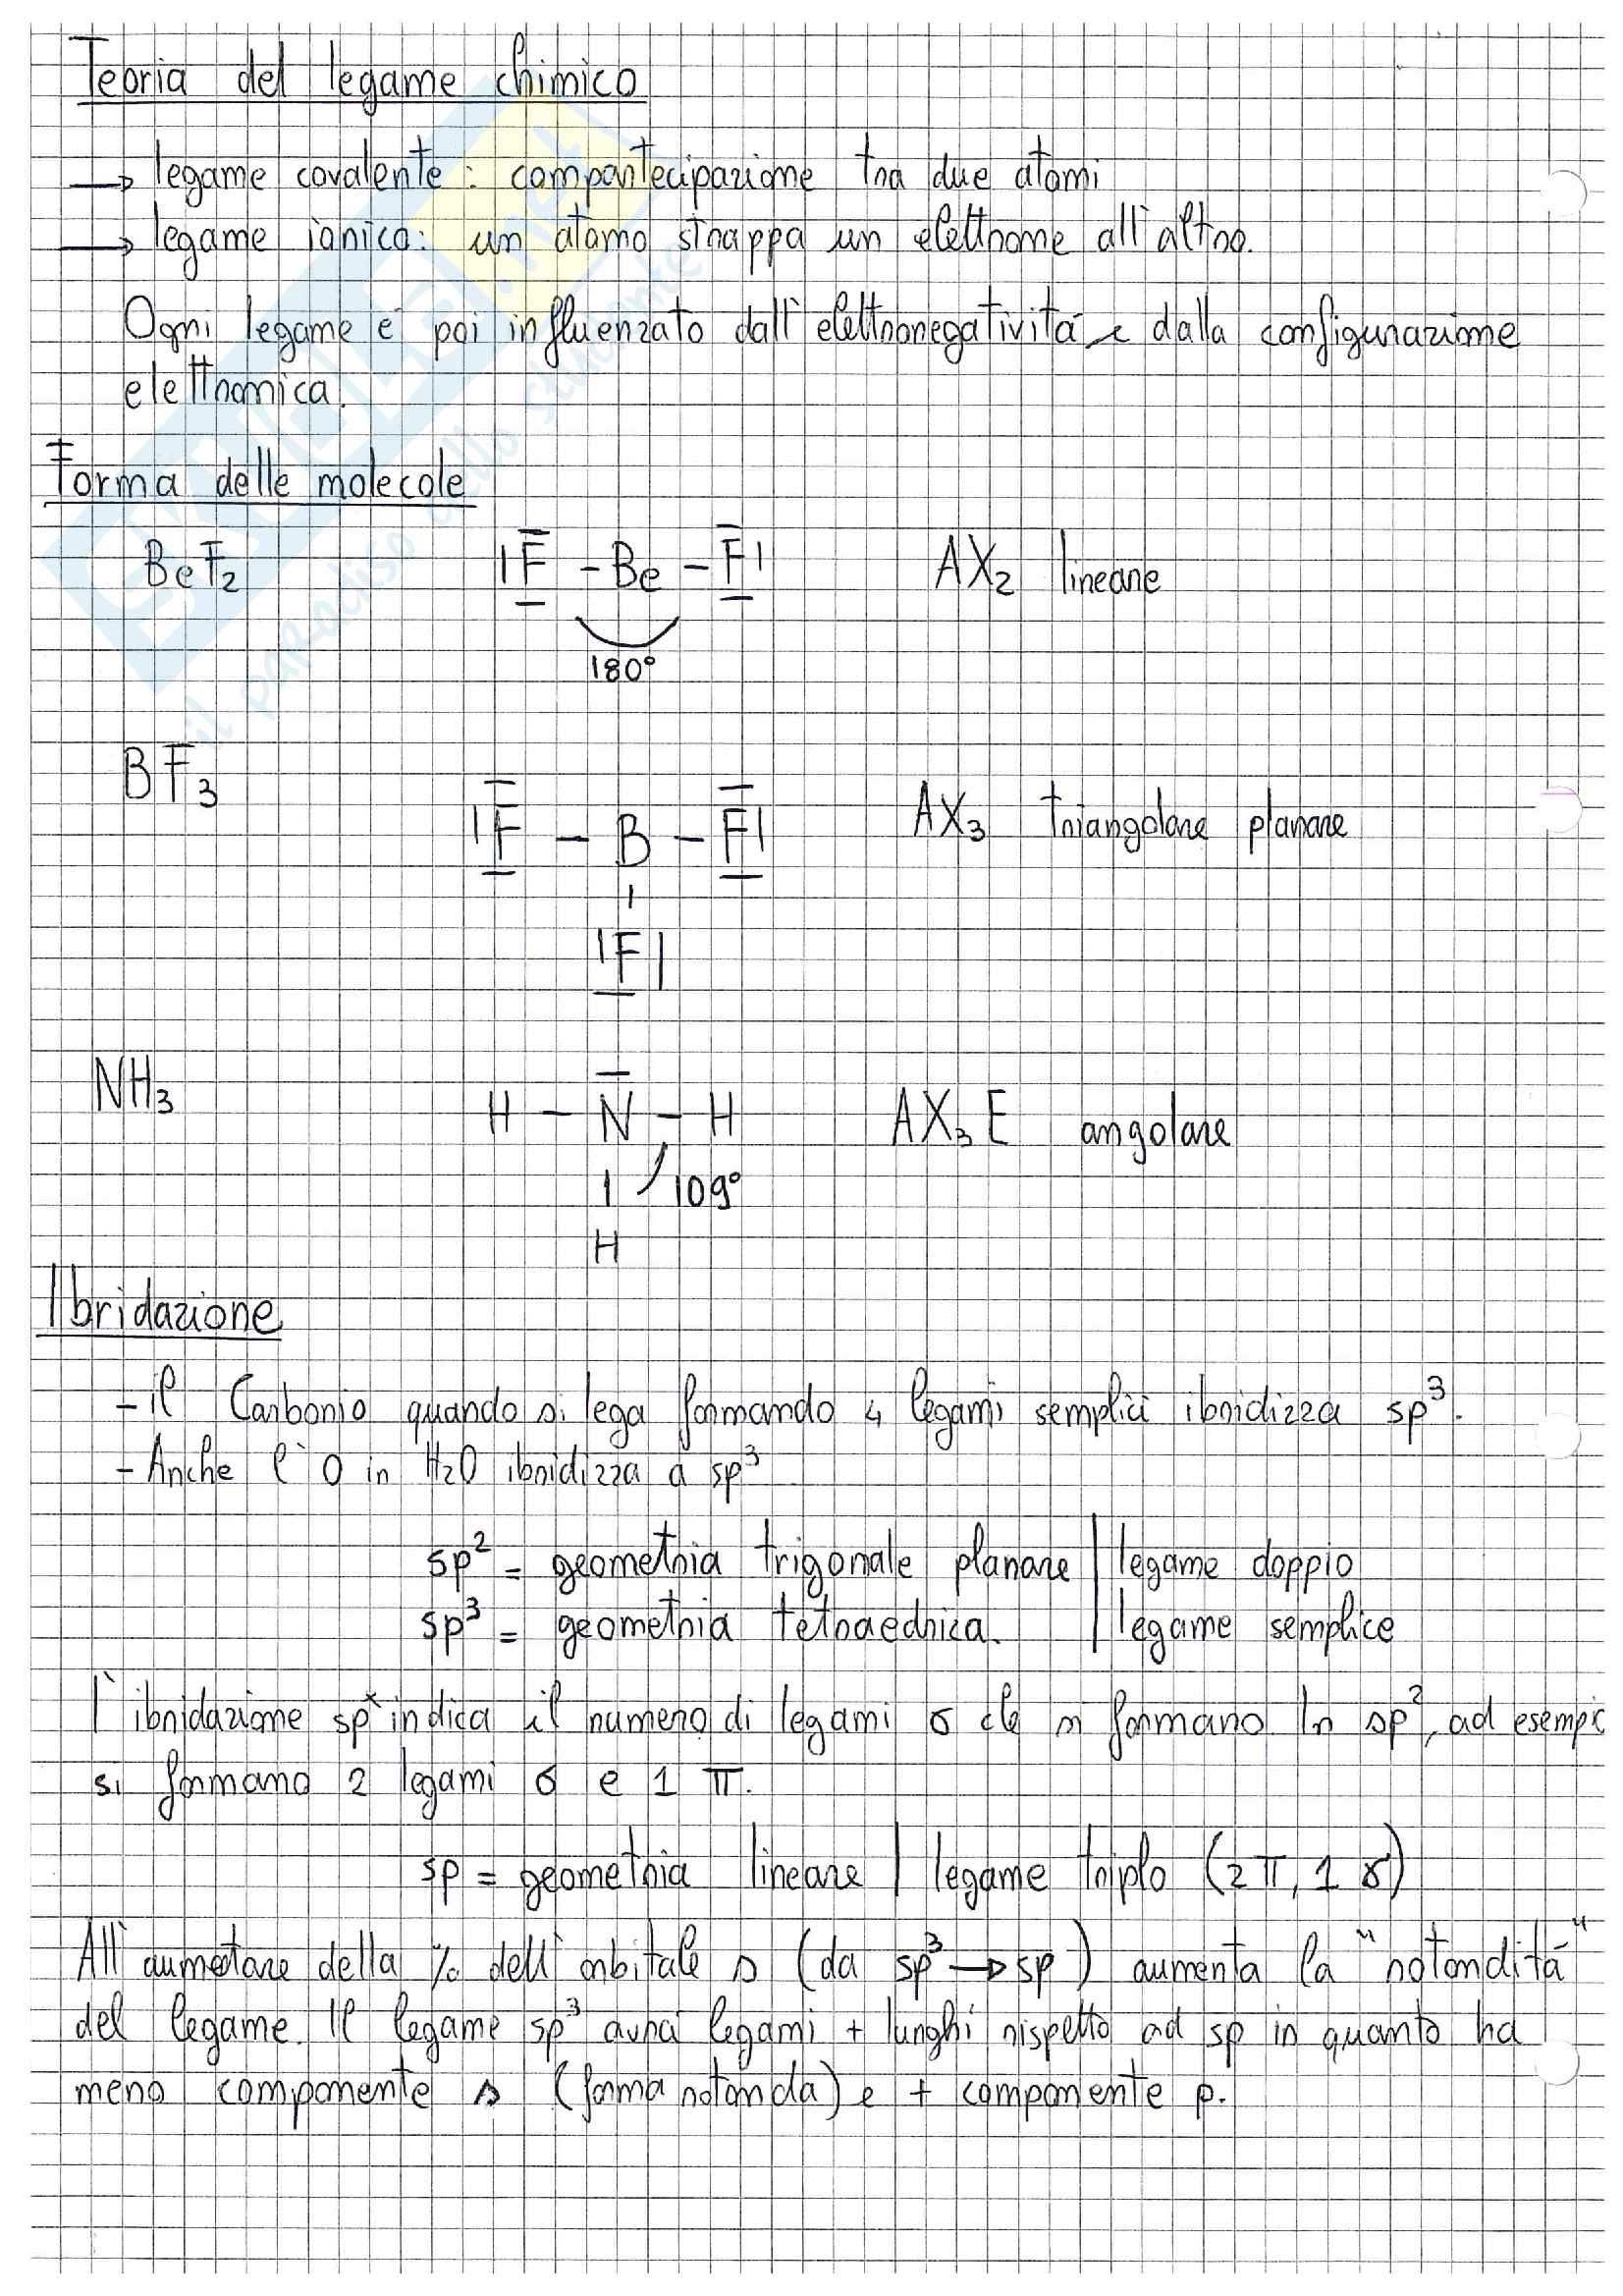 Teoria del legame chimico
→ legame covalente: compartecipazione tra due atomi
→ legame ionico: un atomo strappa un elettrone all'altro.
Ogni legame è poi influenzato dall'elettronegatività e dalla configurazione
elettronica.
Forma delle molecole
BeF₂ |F - Be - F| AX₂ lineare
180°
BF₃ |F - B - F| AX₃ triangolare planare
|
|F|
NH₃ H - N - H AX₃E angolare
| 109°
H
Ibridazione
- il Carbonio quando si lega formando 4 legami semplici ibridizza sp³.
- Anche l'O in H₂O ibridizza a sp³
sp² = geometria trigonale planare | legame doppio
sp³ = geometria tetraedrica. | legame semplice
l'ibridazione spˣ indica il numero di legami σ che si formano. In sp², ad esempio
si formano 2 legami σ e 1 π.
sp = geometria lineare | legame triplo (2π, 1 σ)
All'aumetare della % dell'orbitale s (da sp³ → sp) aumenta la "rotondità"
del legame. Il legame sp³ avrai legami + lunghi rispetto ad sp in quanto ha
meno componente s (forma rotonda) e + componente p.
SKUOLA.net
il paradiso dello studente